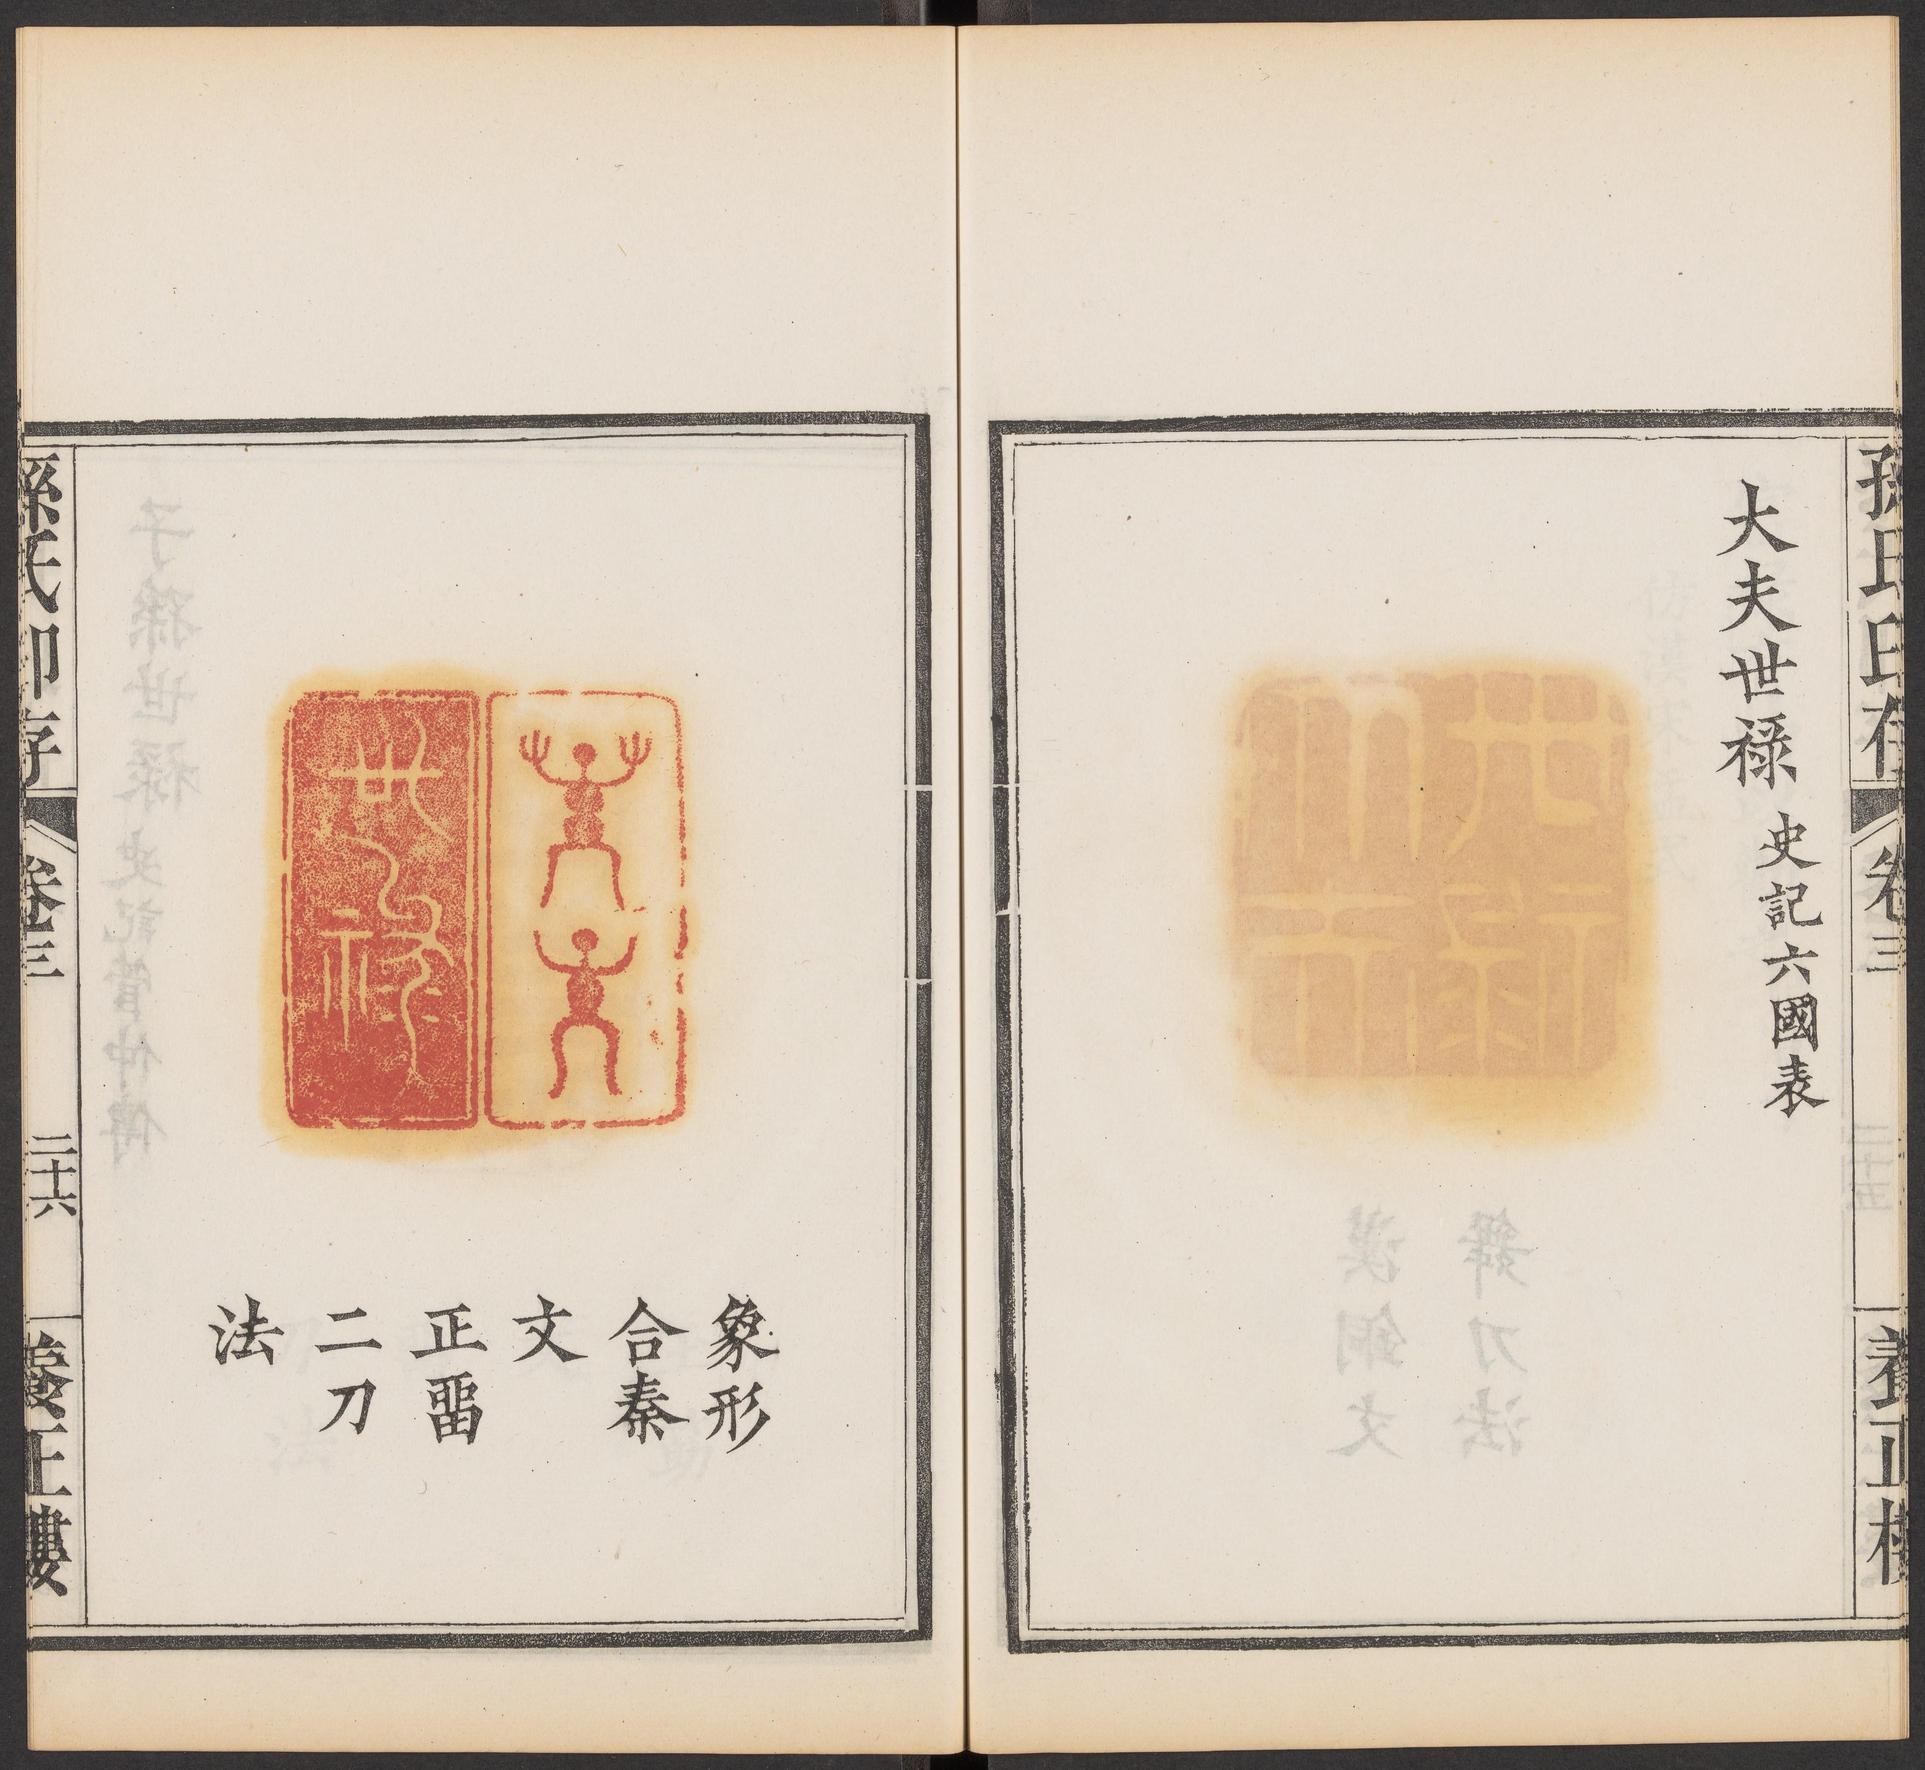 孫氏印存
卷三
養正樓
大夫世祿 史記六國表
世祿
象形
合秦
文
正畱
二刀
法
孫氏印存
卷三
二十六
養正樓